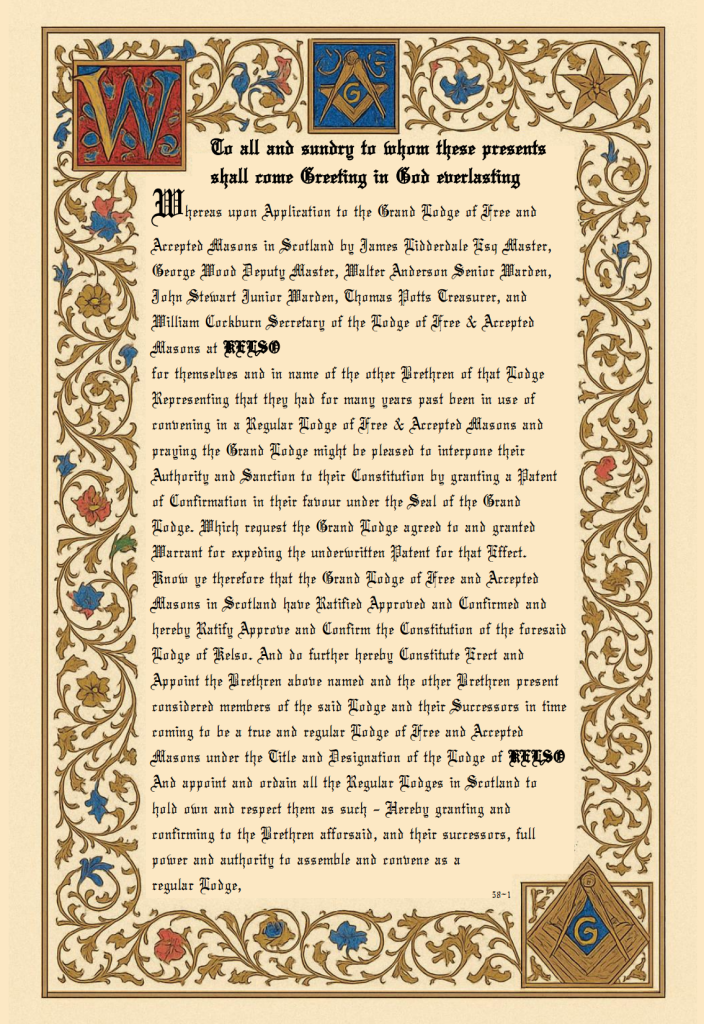 W
G
To all and sundry to whom these presents
shall come Greeting in God everlasting
Whereas upon Application to the Grand Lodge of Free and
Accepted Masons in Scotland by James Lidderdale Esq Master,
George Wood Deputy Master, Walter Anderson Senior Warden,
John Stewart Junior Warden, Thomas Potts Treasurer, and
William Cockburn Secretary of the Lodge of Free & Accepted
Masons at KELSO
for themselves and in name of the other Brethren of that Lodge
Representing that they had for many years past been in use of
convening in a Regular Lodge of Free & Accepted Masons and
praying the Grand Lodge might be pleased to interpone their
Authority and Sanction to their Constitution by granting a Patent
of Confirmation in their favour under the Seal of the Grand
Lodge. Which request the Grand Lodge agreed to and granted
Warrant for expeding the underwritten Patent for that Effect.
Know ye therefore that the Grand Lodge of Free and Accepted
Masons in Scotland have Ratified Approved and Confirmed and
hereby Ratify Approve and Confirm the Constitution of the foresaid
Lodge of Kelso. And do further hereby Constitute Erect and
Appoint the Brethren above named and the other Brethren present
considered members of the said Lodge and their Successors in time
coming to be a true and regular Lodge of Free and Accepted
Masons under the Title and Designation of the Lodge of KELSO
And appoint and ordain all the Regular Lodges in Scotland to
hold own and respect them as such - Hereby granting and
confirming to the Brethren afforsaid, and their successors, full
power and authority to assemble and convene as a
regular Lodge,
58-1
G